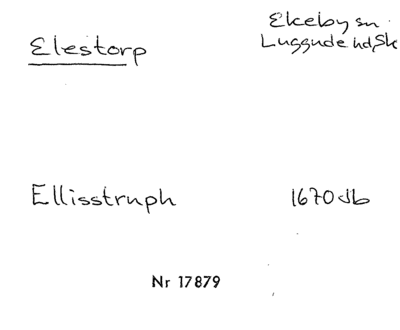 Elestorp
Ekeby sn
Luggude hd, Sk
Ellisstruph
1670 Jb
Nr 17879